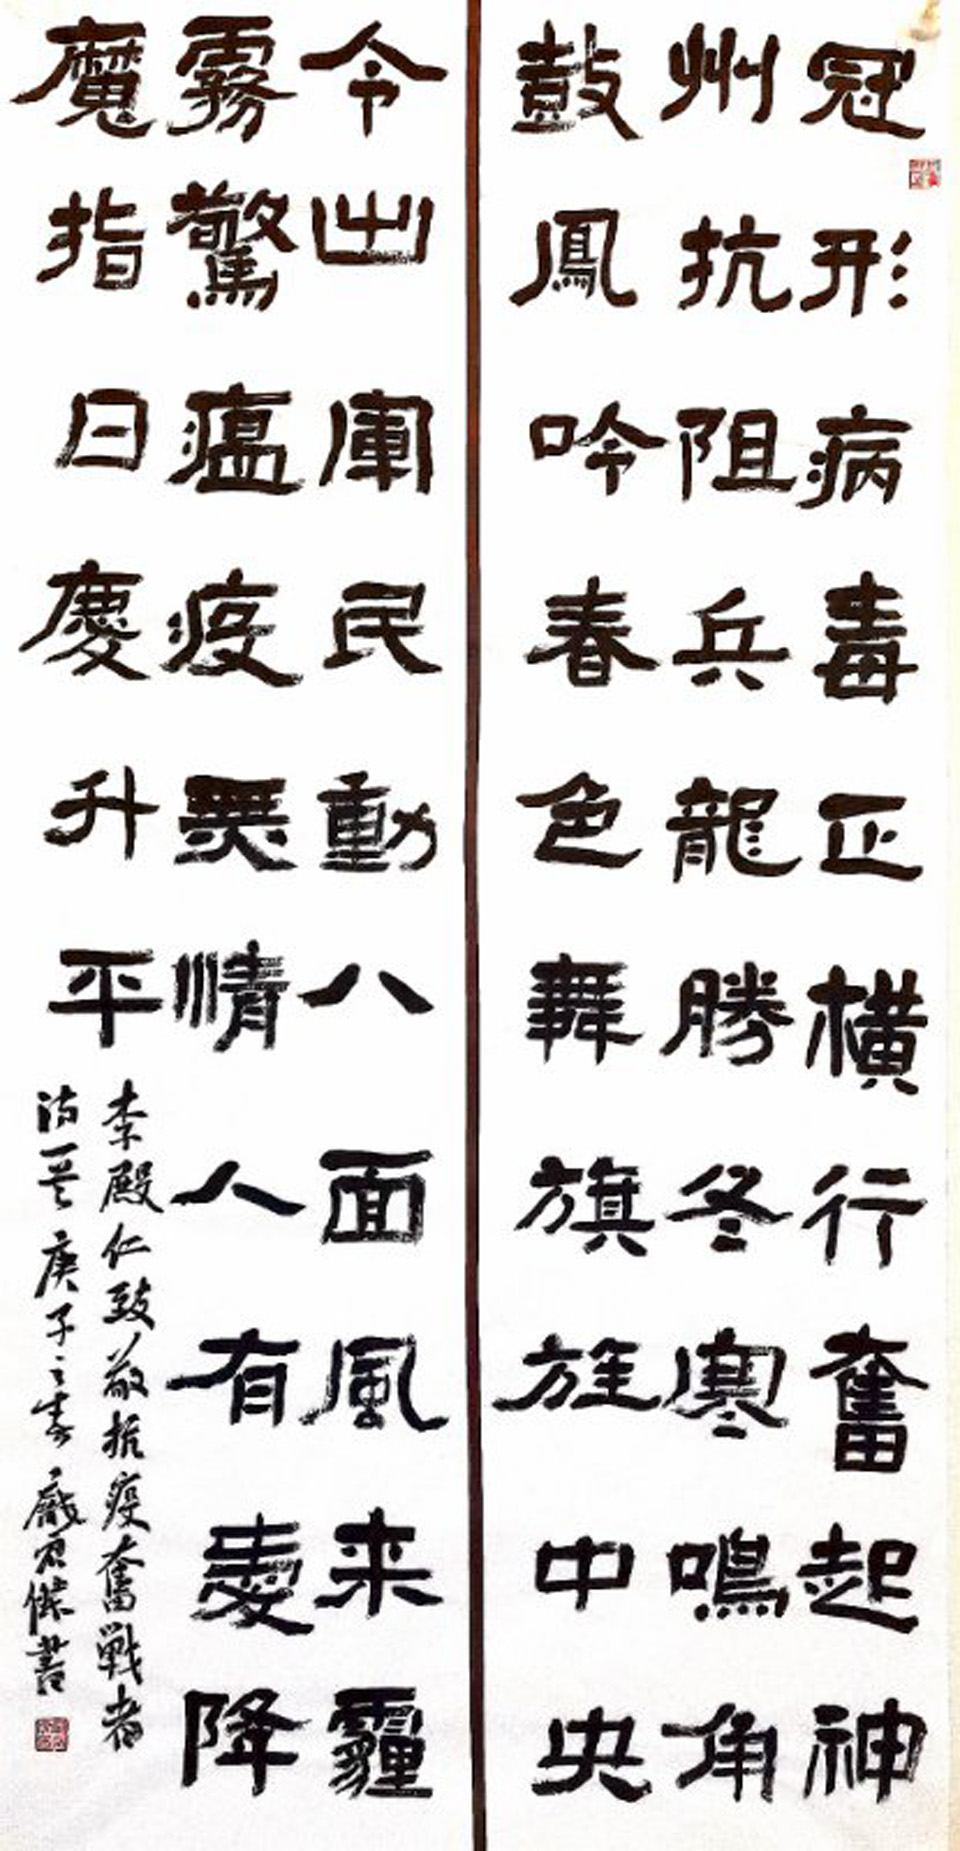 冠形病毒正橫行奮起神
州抗阻兵龍勝冬寒鳴角
鼓鳳吟春色舞旗旌中央
令出軍民動八面風来霾
霧驚瘟疫無情人有愛降
魔指日慶升平
李殿仁致敬抗疫奮戰者
詩一首庚子之春書